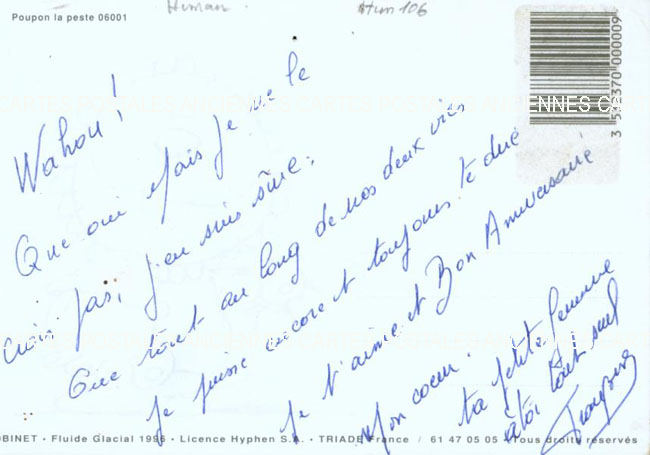 Poupon la peste 06001
Human
Hum 106
3 572370 000009
CARTES POSTALES ANCIENNES CARTES POSTALES ANCIENNES CART
Wahou!
Que oui Mais je ne le
crois pas, j'en suis sûre.
Que tout au long de nos deux vies
je puisse encore et toujours te dire
je t'aime et Bon Anniversaire
Mon coeur.
ta petite femme
à toi tout seul
OBINET • Fluide Glacial 1996 • Licence Hyphen S.A. • TRIADE France / 61 47 05 05 • Tous droits réservés